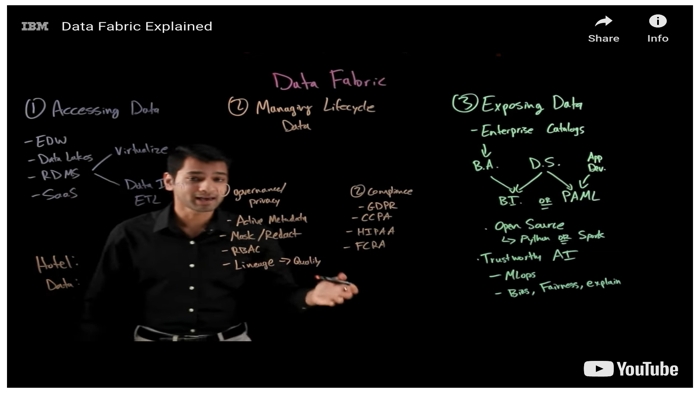 IBM
Data Fabric Explained
Share
Info
Data Fabric
① Accessing Data
- EDW
- Data Lakes
- RDMS
- SaaS
Virtualize
Data
ETL
Hotel:
Data:
② Managing Lifecycle
Data
governance/
privacy
- Active Metadata
- Mask/Redact
- RBAC
- Lineage → Quality
② Compliance
- GDPR
- CCPA
- HIPAA
- FCRA
③ Exposing Data
- Enterprise Catalogs
B.A.
D.S.
App
Dev.
BI. OR PAML
• Open Source
↳ Python OR Spark
• Trustworthy AI
- MLops
- Bias, Fairness, explain
YouTube